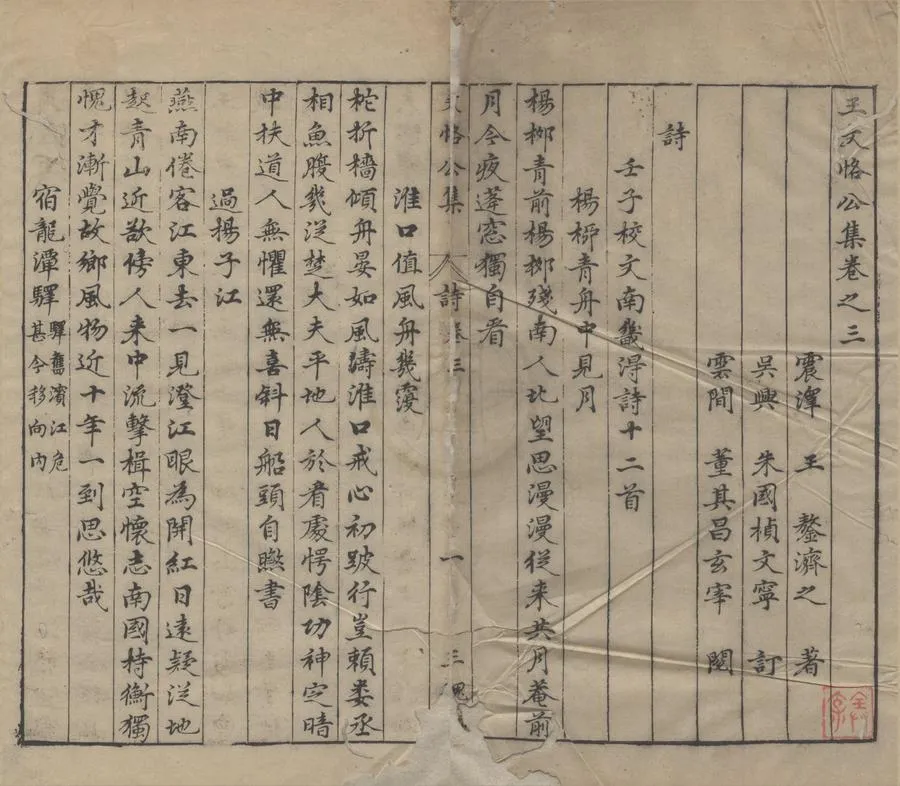 王文恪公集卷之三
震澤 王 鏊濟之 著
吳興 朱國楨文寧 訂
雲間 董其昌玄宰 閱
詩
壬子校文南畿得詩十二首
楊柳青舟中見月
楊柳青前楊柳殘南人北望思漫漫從来共月菴前
月今夜蓬窓獨自看
文恪公集 詩卷三 一 三槐
淮口值風舟幾覆
柁折檣傾舟晏如風濤淮口戒心初跛行豈賴婁丞
相魚腹幾從楚大夫平地人於看處愕陰功神定暗
中扶道人無懼還無喜斜日船頭自曝書
過揚子江
燕南倦客江東去一見澄江眼為開紅日遠疑從地
起青山近欲傍人来中流擊楫空懷志南國持衡獨
愧才漸覺故鄉風物近十年一到思悠哉
宿龍潭驛驛舊濱江危甚今移向内